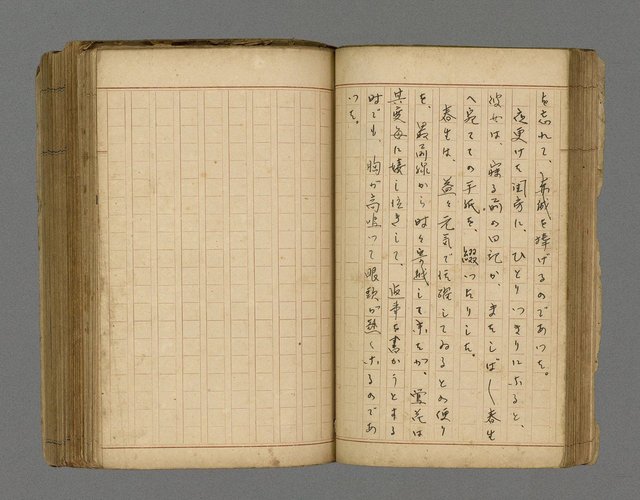 を忘れて、赤誠を捧げるのであつた。
夜更けた閨房に、ひとりつきりになると、
彼女は、寝る前の日記か、またしばしば春生
へ宛てての手紙を、綴つたりした。
春生は、益々元気で活躍してゐるとの便り
を、最前線から時々寄越して来たが、鶯花は
其度毎に嬉し泣きして、返事を書かうとする
時でも、胸が高鳴つて眼頭が熱くなるのであ
つた。